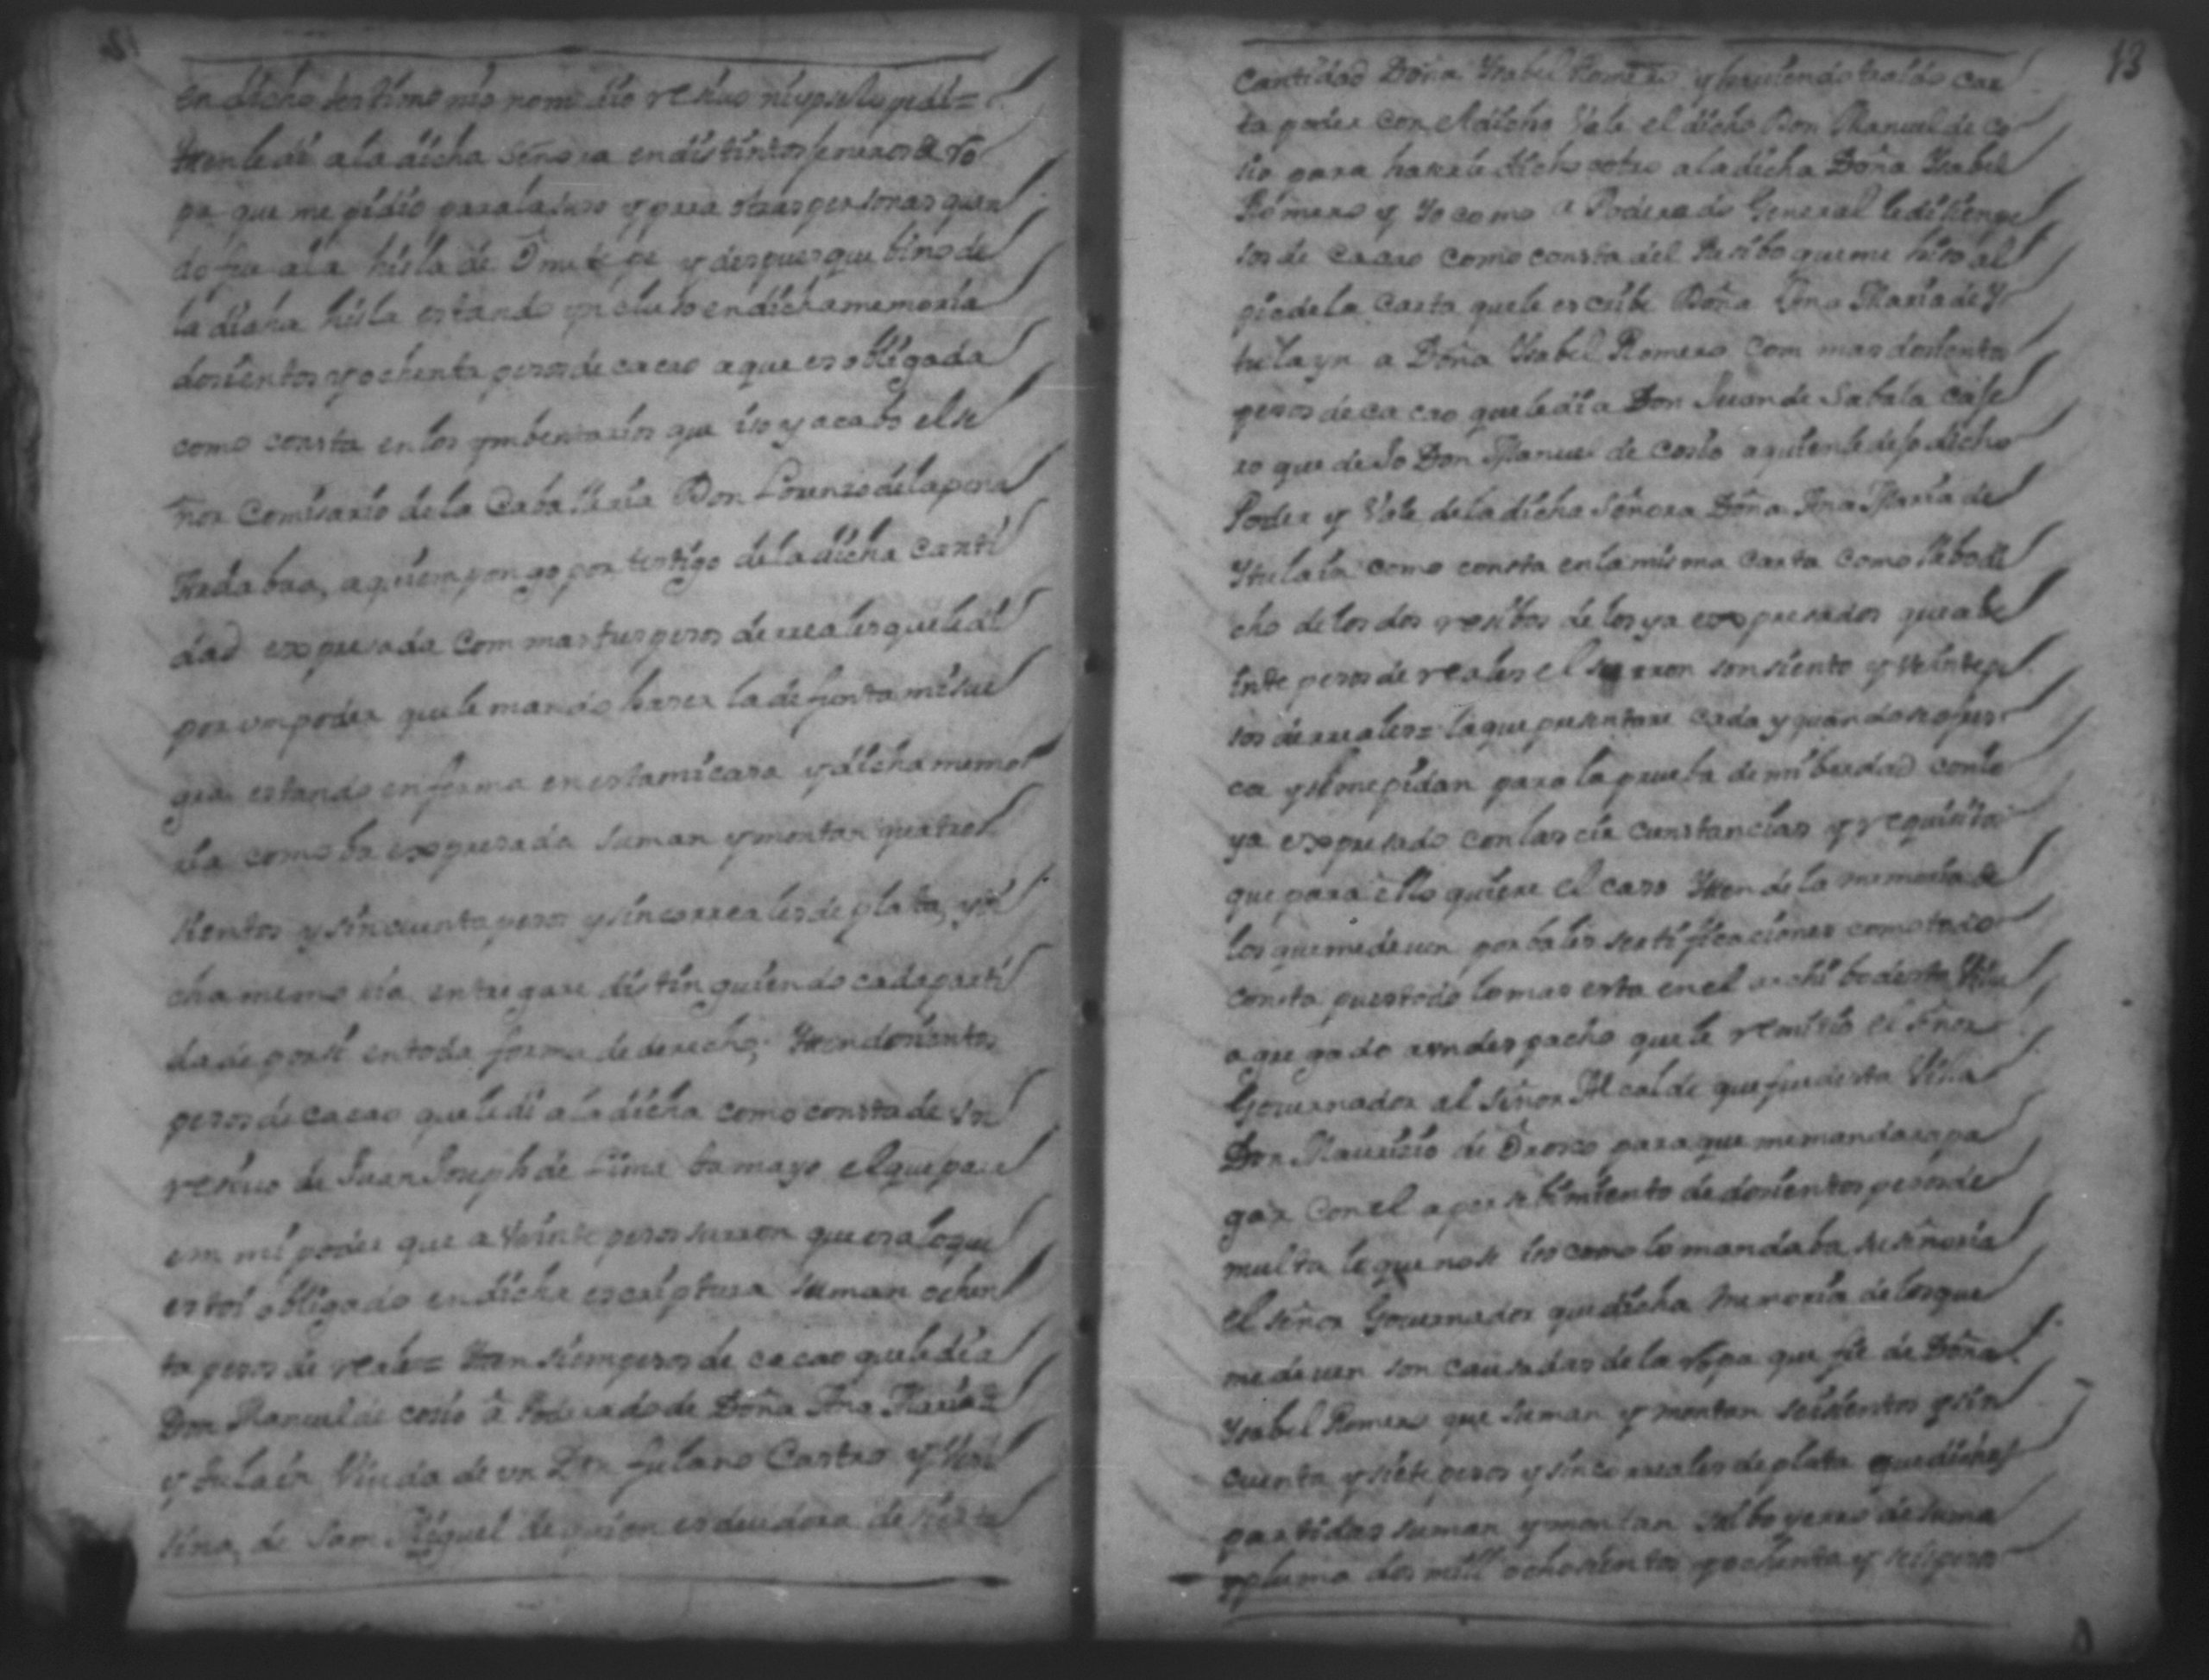 en dicho testimonio nome dio resiuo ni yo se lo pedi =
Yten le di ala dicha señora en distintos jeneros de ro
pa que me pidio para la suso y para otras personas quan
do fue ala hisla de Ometepe y despues que bino de
la dicha hisla estando yncluso en dicha memoria
dosientos y ochenta pesos de cacao a que es obligada
como consta en los ymbentarios que iso y acabo el se
ñor Comisario de la Caballeria Don Lorenso de la pena
Andabra, a quiem pongo por testigo de la dicha canti
dad expresada com mas tres pesos de rreales que le di
por vn poder que le mando haser la defunta mi sue
gra estando enferma en esta mi casa y dicha memo
ria como ba expresada suman y montan quatro
sientos y sincuenta pesos y sinco rreales de plata, y di
cha memoria entregare distinguiendo cada parti
da de por si en toda forma de derecho; Yten dosientos
pesos de cacao que le di ala dicha como consta de su
resiuo de Juan Joseph de Lima tamayo el que para
em mi poder que a veinte pesos surron que es alo que
estoi obligado en dicha escriptura suman ochen
ta pesos de reales = Yten siem pesos de cacao que le di a
Don Manuel de cosio â Poderado de Doña Ana Maria de
ytulain Viuda de vn Don fulano Castro y Vesi
sina, de Sam Miguel de quien es deudora de sierta
13
Cantidad Doña Ysabel Romero y hauiendo traido car
ta poder con el dicho Vale el dicho Don Manuel de co
sio para haserle dicho cobro ala dicha Doña Ysabel
Romero y Yo como aPoderado General le di siem pe
sos de cacao como consta del Resibo que me hiso al
pie de la Carta que le escribe Doña Ana Maria de Y
tulayn a Doña Ysabel Romero com mas dosientos
pesos de cacao que le di a Don Juan de Sabala caje
ro que dejo Don Manuel de Cosio a quien le dejo dicho
Poder y Vale de la dicha Señora Doña Ana Maria de
Ytulain como consta en la misma carta como llebo di
cho de los dos resibos de los ya expresados que a be
inte pesos de reales el surron son siento y veinte pe
sos de rreales = la que presentare cada y quando se ofres
ca y se me pidan para la prueba de mi berdad con lo
ya expresado con las circunstancias y requisitos
que para ello quiere el caso Yten de la memoria de
los que me deuen por bales sertificaciones como todo
consta pues todo lo mas esta en el archibo de esta Villa
agregado a vn despacho que le remitio el señor
Gouernador al señor Alcalde que fue de esta Villa
Don Mauricio de Orosco para que me mandara pa
gar con el apersebimiento de dosientos pesos de
multa lo que no se iso como lo mandaba su señoria
el señor Gouernador que dicha memoria de los que
me deuen son causadas de la ropa que fie de Doña
Ysabel Romero que suman y montan seisientos y sin
cuenta y siete pesos y sinco rreales de plata que dichas
partidas suman y montan salbo yerro de suma
y pluma dos mill ochosientos y ochenta y seis pesos